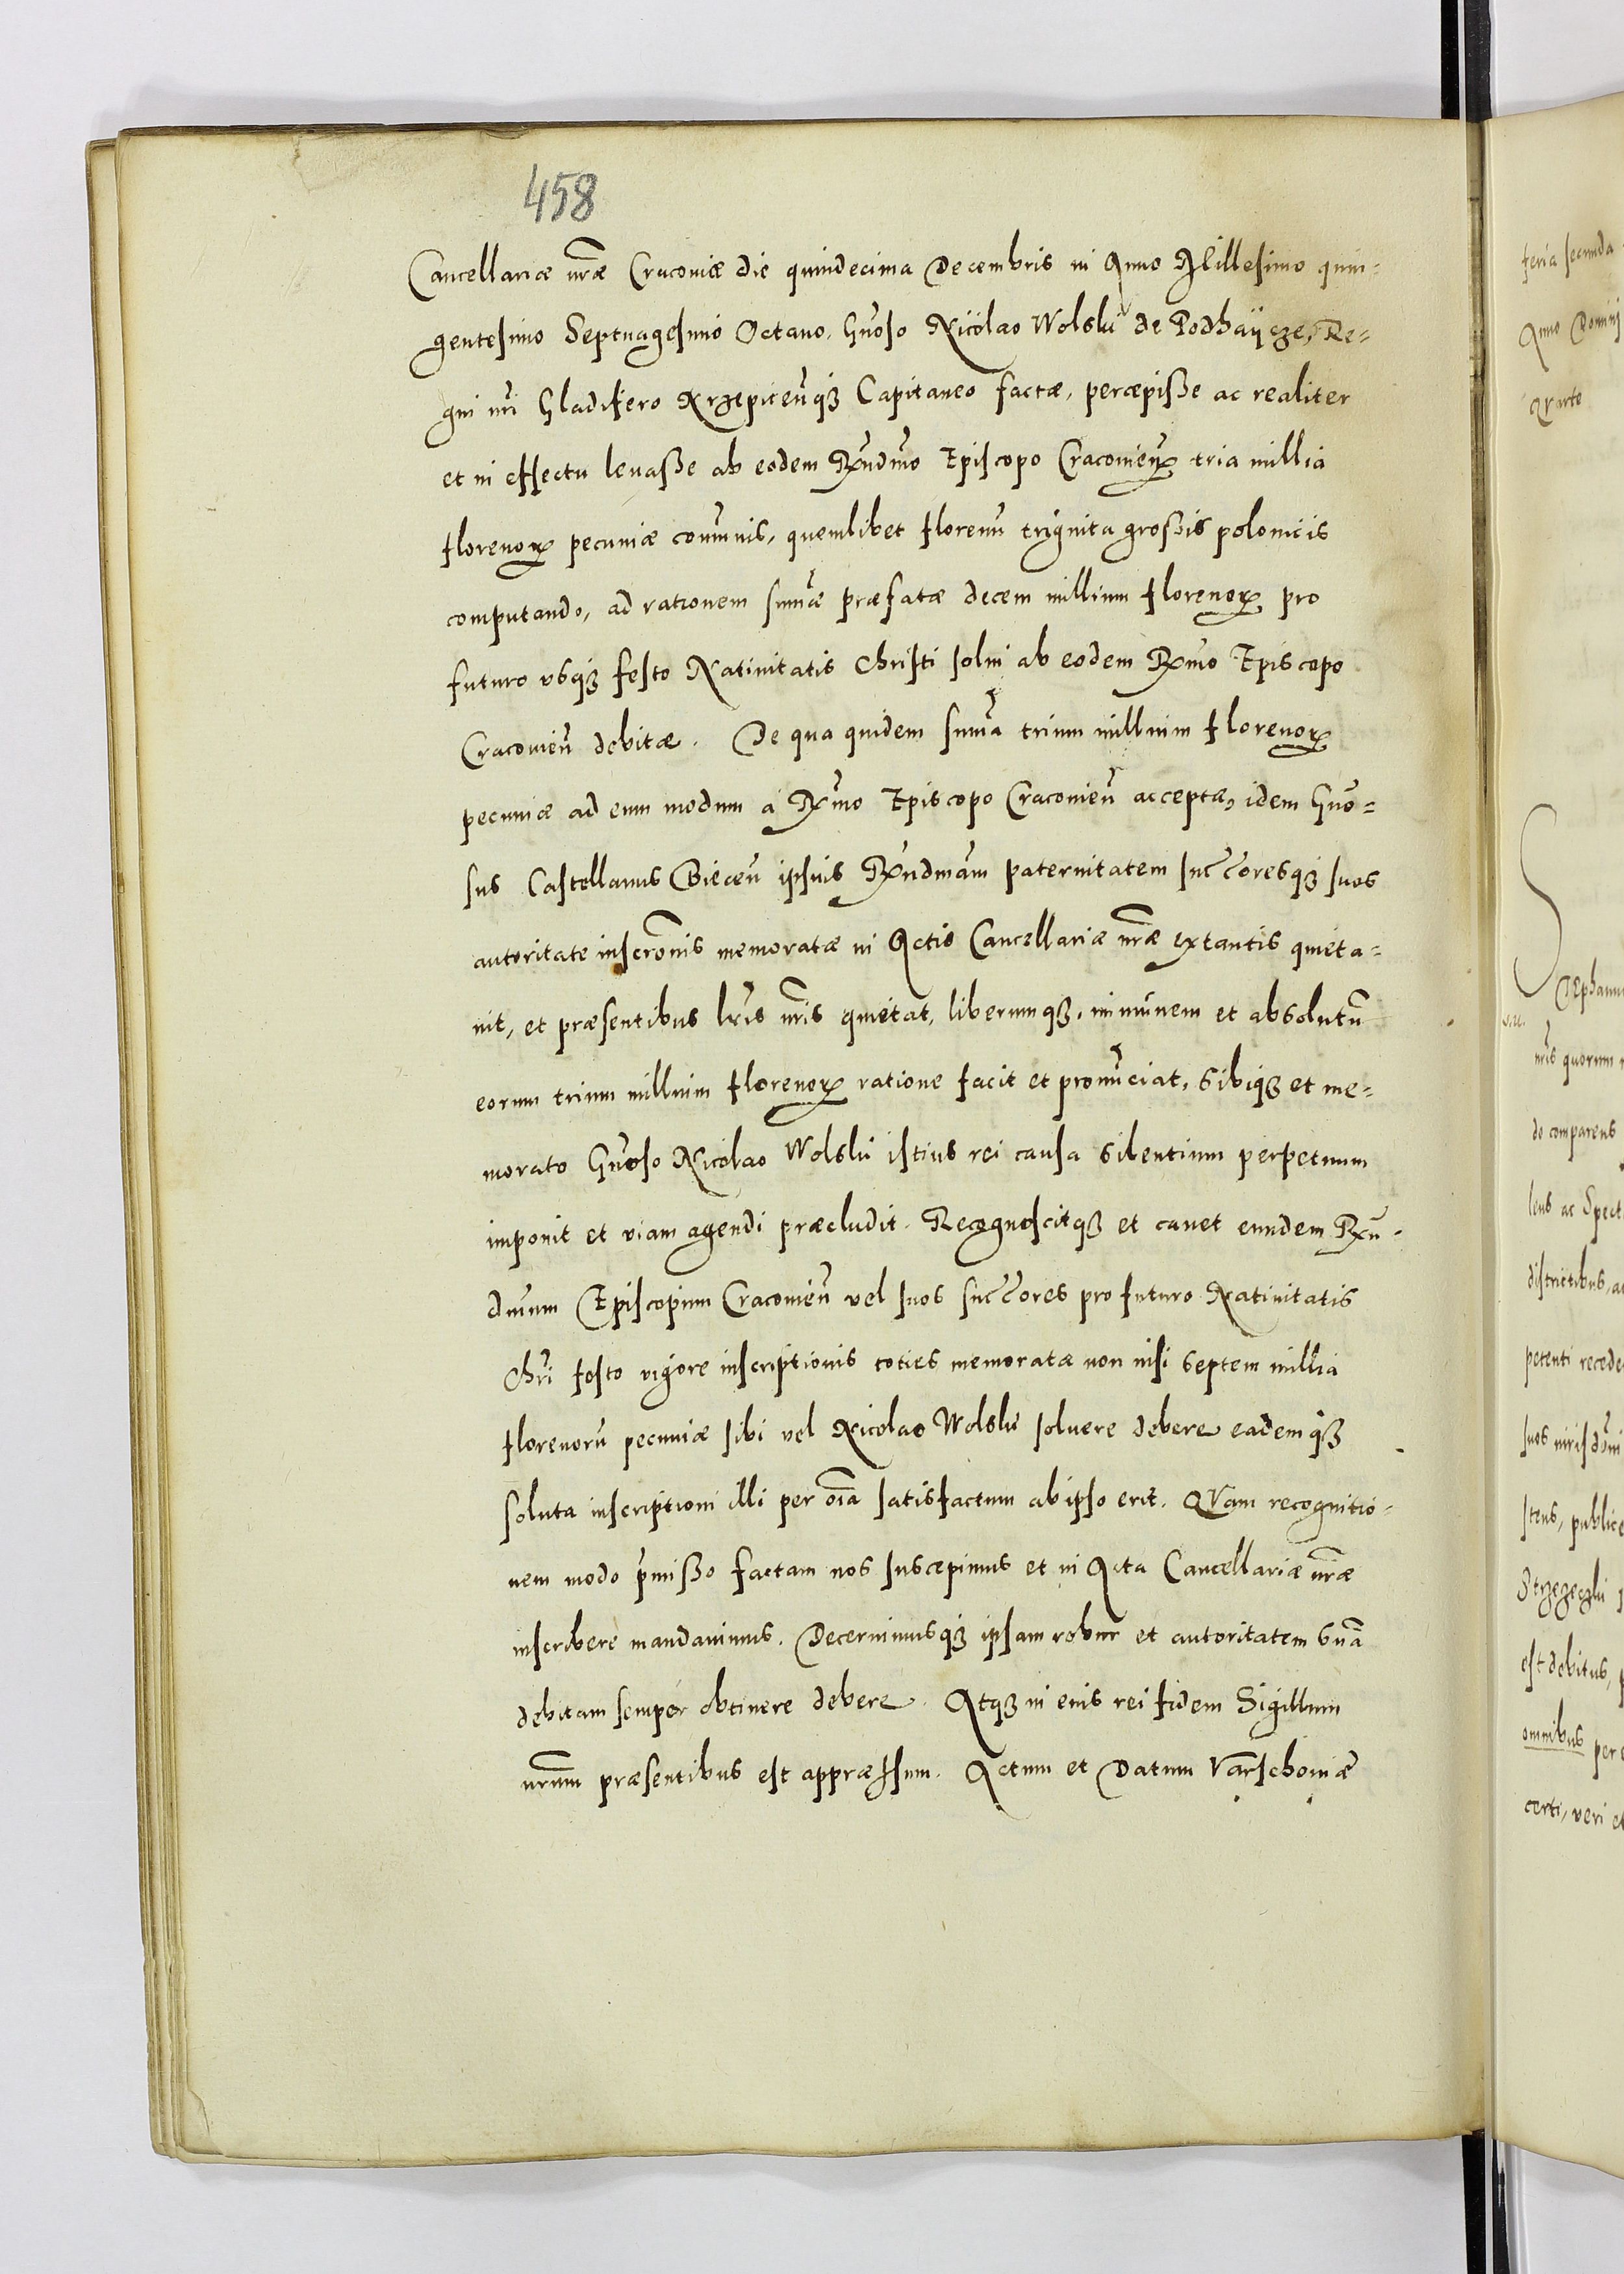 458
Cancellariæ nr̃æ Cracoviæ die quindecima Decembris in Anno Millesimo quin-
gentesimo Septuagesimo Octavo. Gñoso Nicolao Wolski de Podhaÿcze, Re-
gni nr̃i Gladifero Krzepiceñqʒ Capitaneo factæ, percæpisse ac realiter
et in effectu levasse ab eodem Rñdmo Episcopo Cracovieñ tria millia
florenorꝝ pecuniæ com̃unis, quemlibet florenũ triginta grossis polonicis
computando, ad rationem sum̃æ præfatæ decem millium florenorꝝ pro
futuro usqʒ festo Nativitatis Christi solvi ab eodem Rm̃o Episcopo
Cracovieñ debitæ. De qua quidem sum̃a trium millium florenorꝝ
pecuniæ ad eum modum à Rm̃o Episcopo Cracovieñ acceptæ, idem Gño-
sus Castellanus Bieceñ ipsius Rñdmam paternitatem succ̃oresqʒ suos
autoritate inscrõnis memoratæ in Actis Cancellariæ nr̃æ extantis quieta-
vit, et præsentibus lr̃is nr̃is quietat, liberumqʒ, immunem et absolutũ
eorum trium millium florenorꝝ ratione facit et pronũciat, sibiqʒ et me-
morato Gñoso Nicolao Wolski istius rei causa silentium perpetuum
imponit et viam agendi præcludit. Recognoscitqʒ et cavet eundem Rñ-
dmum Episcopum Cracovieñ vel suos succ̃ores pro futuro Nativitatis
Chr̃i festo vigore inscriptionis toties memoratæ non nisi septem millia
florenorũ pecuniæ sibi vel Nicolao Wolski solvere debere eademqʒ
soluta inscriptioni illi per oĩa satisfactum ab ipso erit. Quam recognitio-
nem modo p̃misso factam nos suscepimus et in Acta Cancellariæ nr̃æ
inscribere mandavimus. Decernimusqʒ ipsam robur et autoritatem suã
debitam semper obtinere debere. Atqʒ in eius rei fidem Sigillum
nr̃um præsentibus est appræssum. Actum et Datum Varschoviæ
feria secunda
Anno Domini
quarto
nr̃is quorum
do comparens
lens ac Spect
districtibus, a
petenti recede
stens, publice
est debitus,
omnibus per
certi, veri et